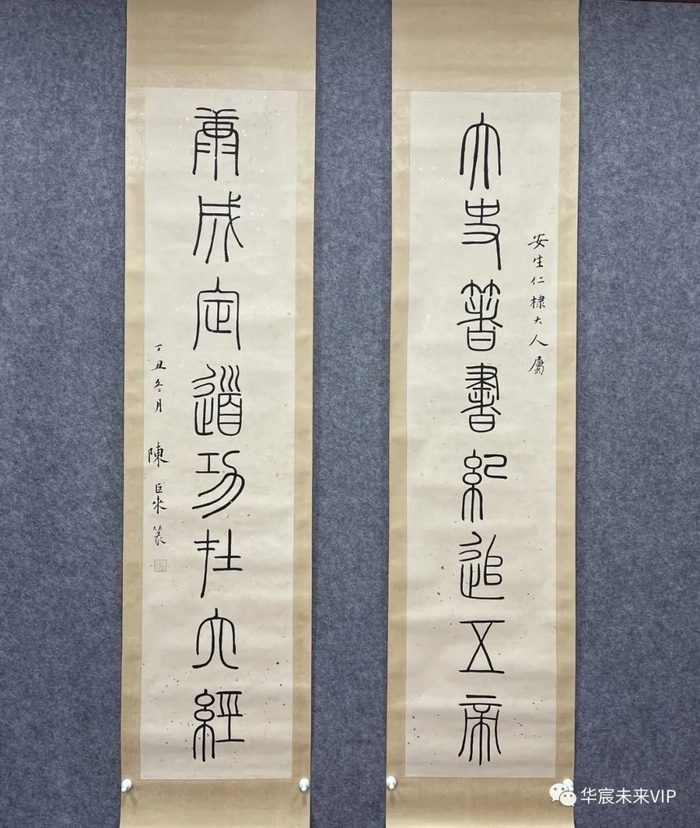 安生仁棣大人屬
大史箸書紀追五帝
康成定道功在六經
丁丑冬月 陳巨來篆
华宸未来VIP